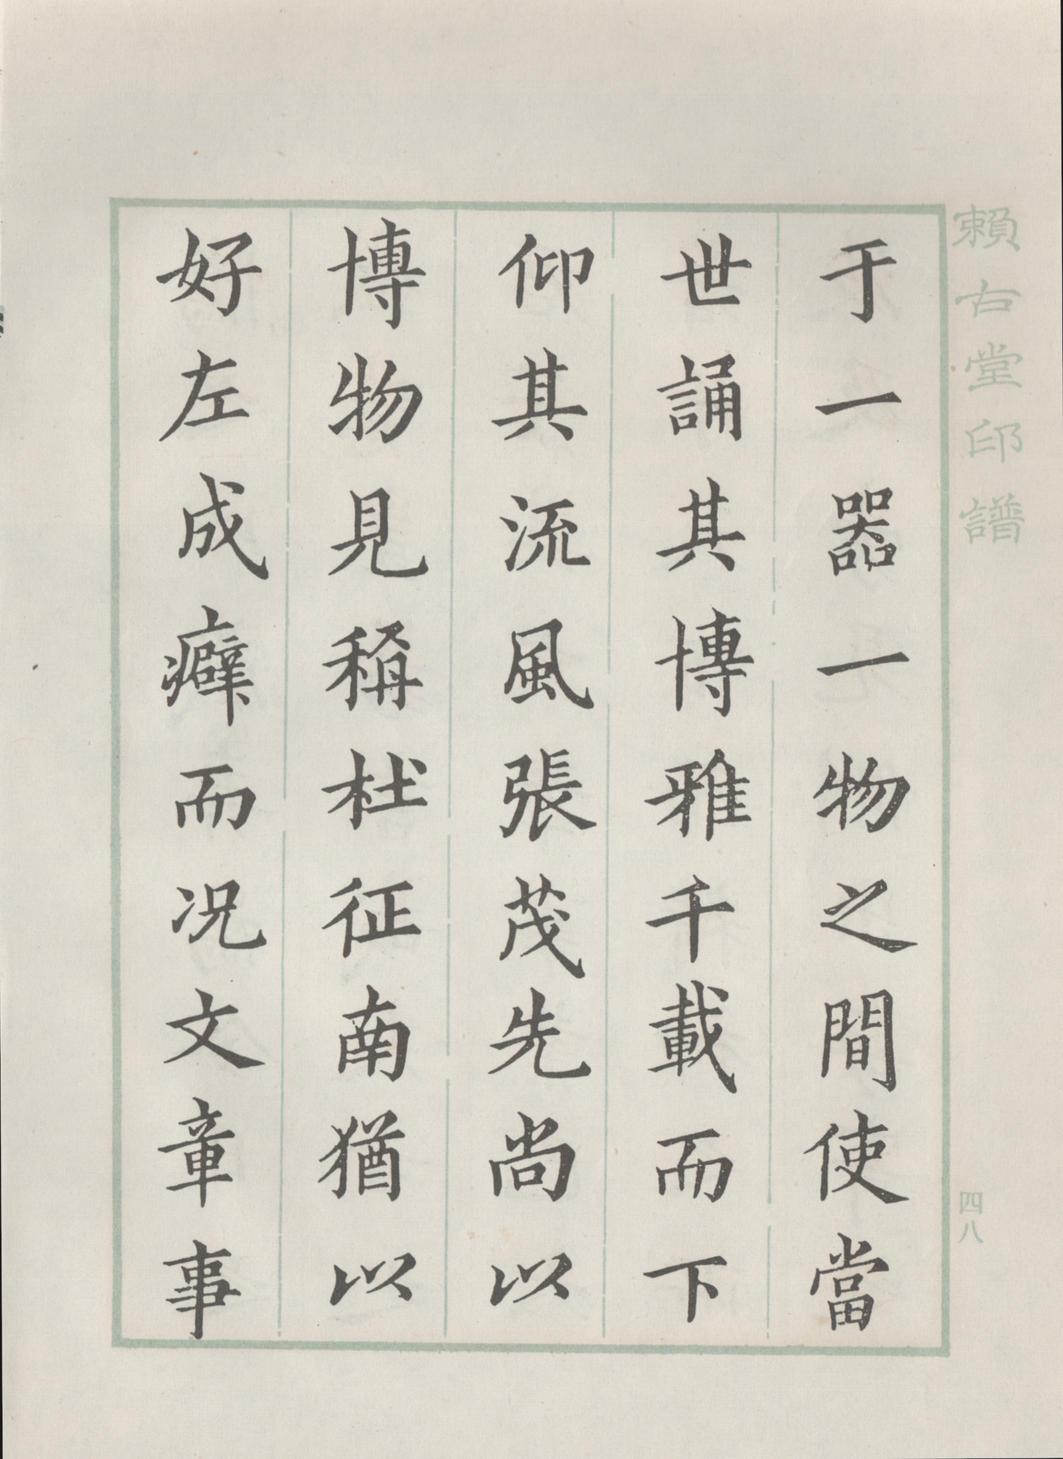 賴古堂印譜
四八
于一器一物之間使當
世誦其博雅千載而下
仰其流風張茂先尚以
博物見稱杜征南猶以
好左成癖而况文章事